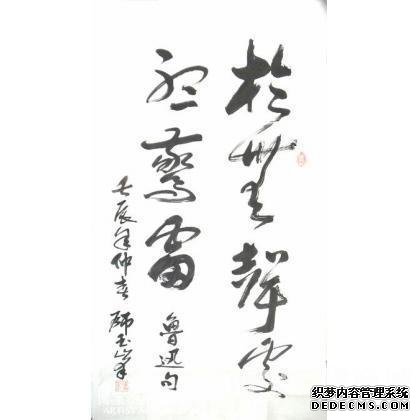 於無聲處
聽驚雷
魯迅句
壬辰年仲春
织梦内容管理系统
DEDECMS.COM